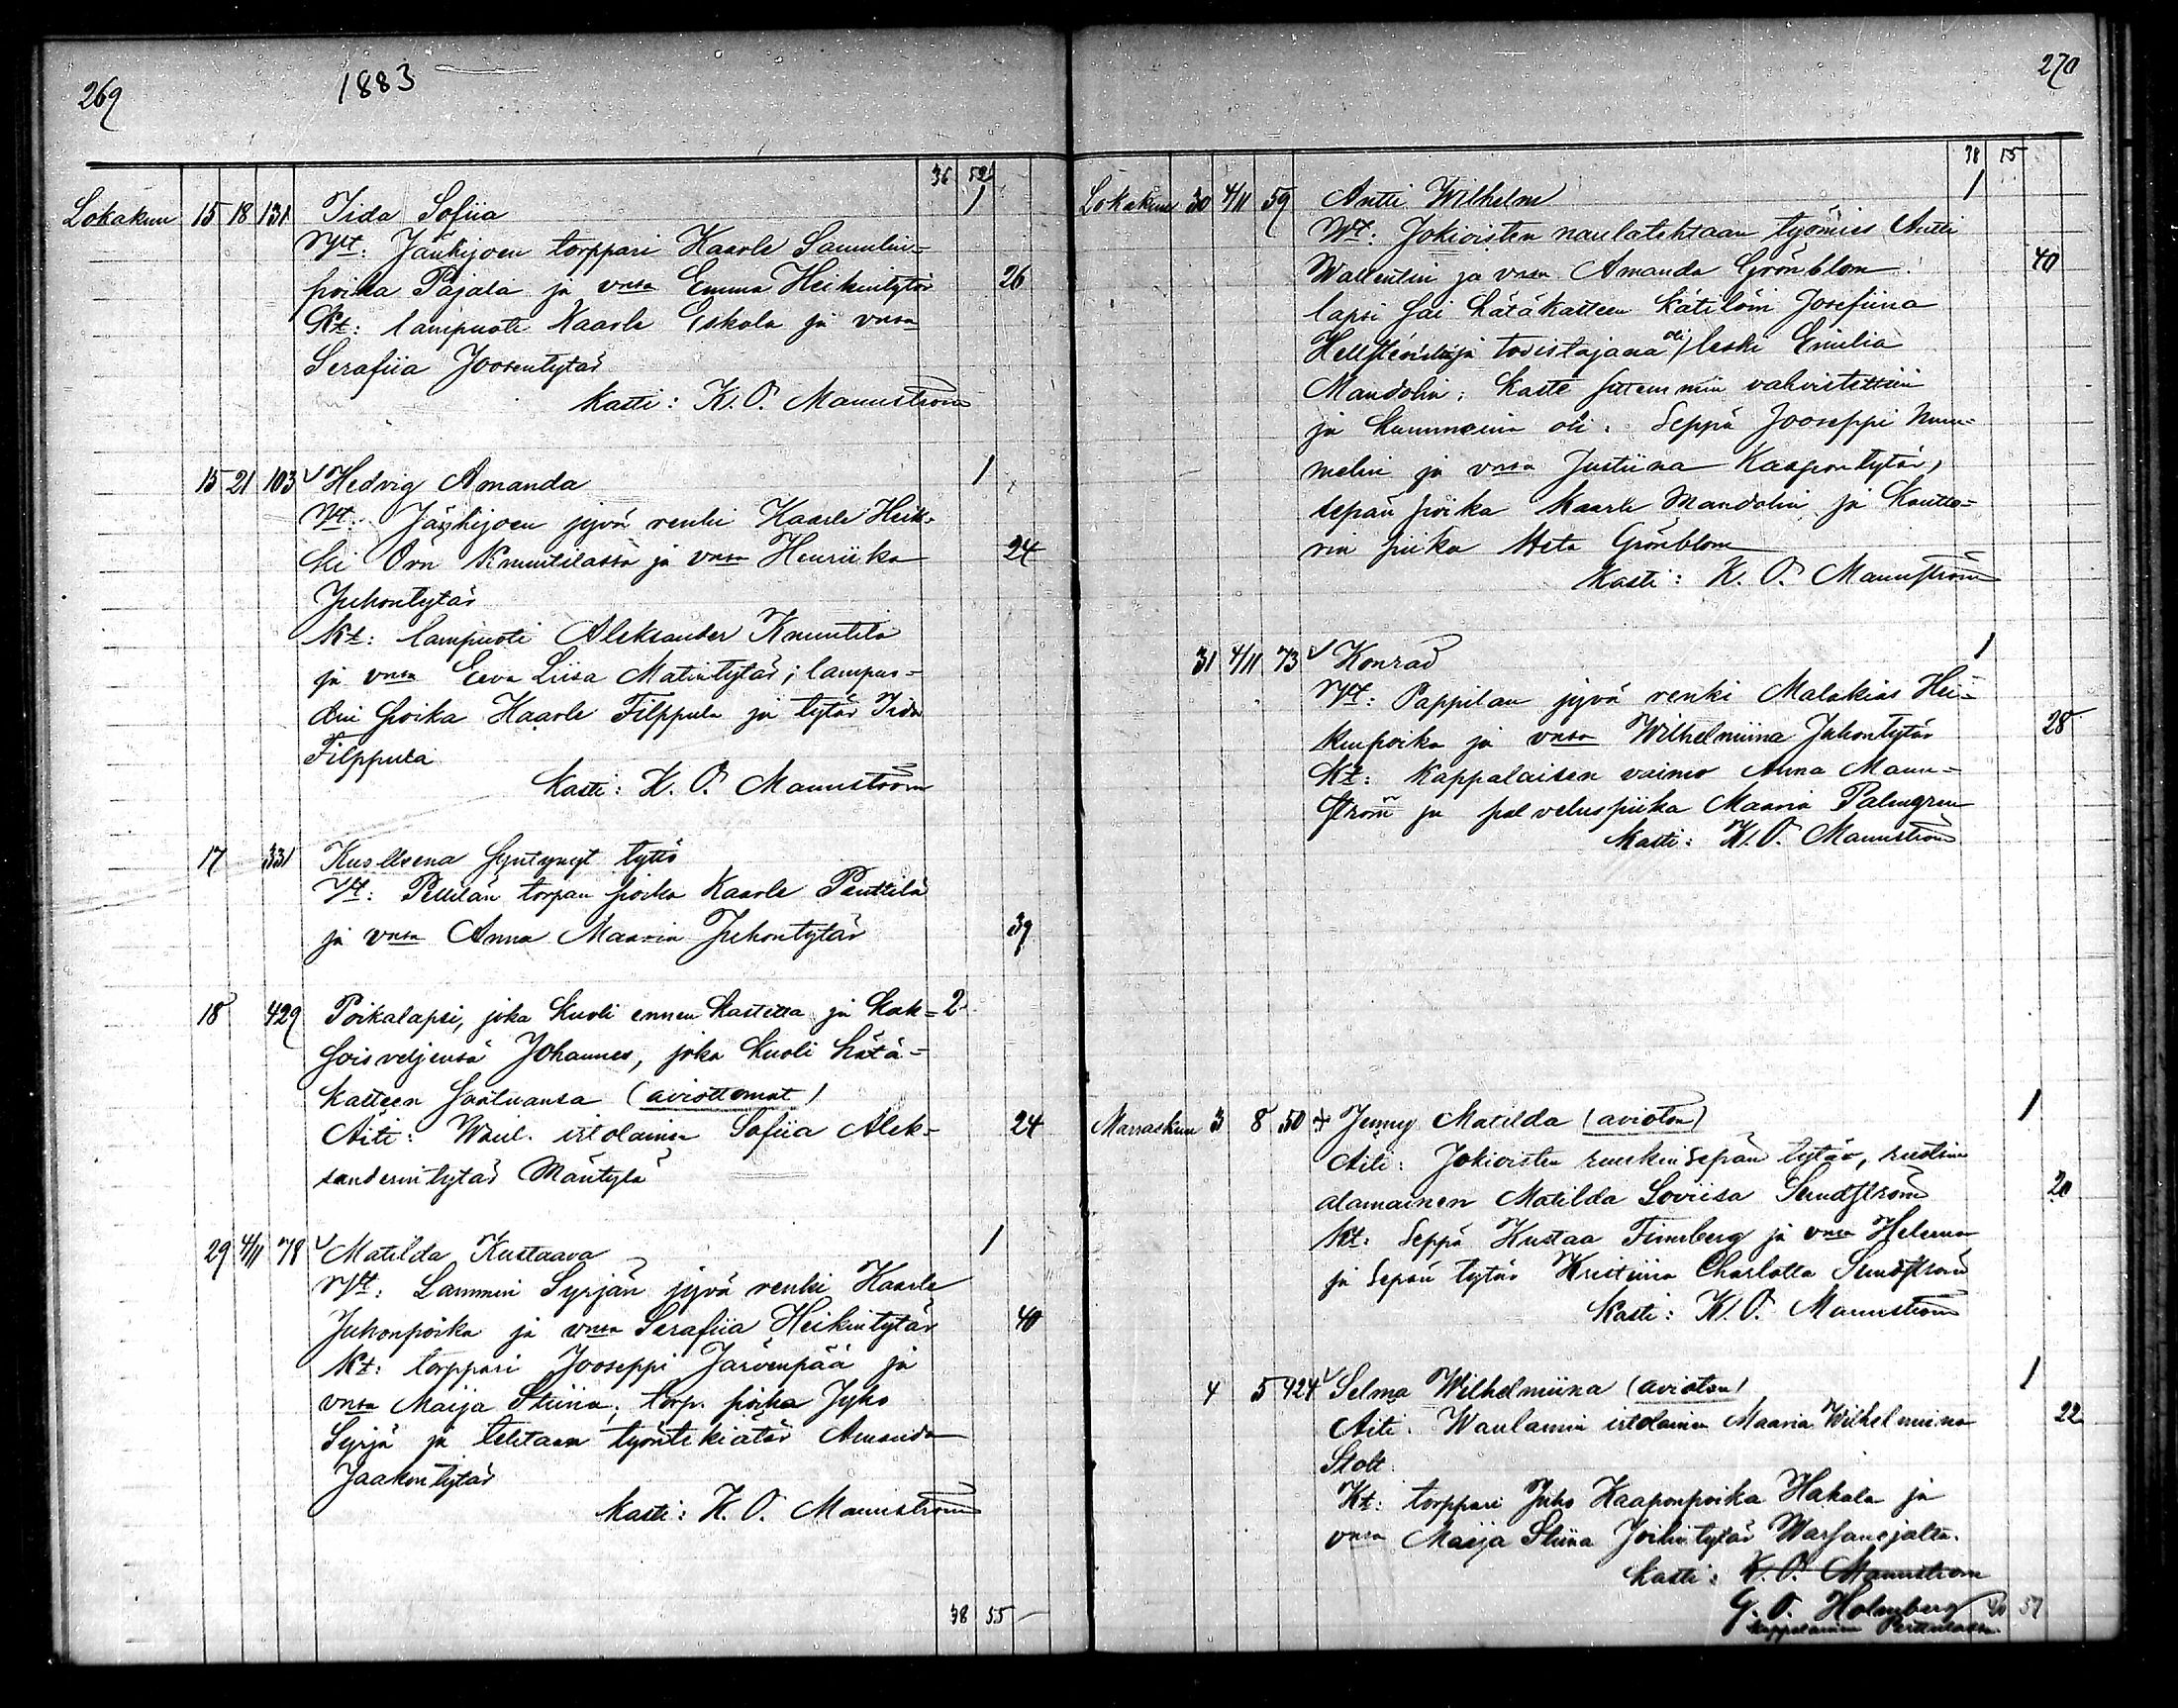 269
1883
36 52
Lokakuu 15 18 131 Iida Sofiia 1
Vt: Jänhijoen torppari Kaarle Samulin-
poika Pajala ja vmsa Emma Heikintytär 26
Kt: lampuoti Kaarle Eskola ja vmsa
Serafiia Joosentytär
Kasti: K. O. Mannström
15 21 103 Hedvig Amanda 1
Vt: Jänhijoen jyvä renki Kaarle Heik-
ki Örn Knuutilassa ja vmsa Henriika 24
Juhontytär
Kt: lampuoti Aleksander Knuutila
ja vmsa Eeva Liisa Matintytär; lampuo-
din poika Kaarle Filppula ja tytär Iida
Filppula
Kasti: K. O. Mannström
17 331 Kuolleena syntynyt tyttö
Vt: Pellilän torpan poika Kaarle Penttilä
ja vmsa Anna Maaria Juhontytär 39
18 429 Poikalapsi, joka kuoli ennen kastetta ja kak- 2
soisveljensä Johannes, joka kuoli hätä-
kasteen saatuansa (aviottomat)
Äiti: Waul. irtolainen Sofiia Alek- 24
sanderintytär Mäntylä
29 4/11 78 Matilda Kustaava 1
Vt: Lammin Syrjän jyvä renki Kaarle
Juhonpoika ja vmsa Serafiia Heikintytär 40
Kt: torppari Jooseppi Järvenpää ja
vmsa Maija Stiina; torp. poika Jyho
Syrjä ja tehtaan työntekiätär Amanda
Jaakontytär
Kasti: K. O. Mannström
38 55
270
38 55
Lokakuu 30 4/11 59 Antti Wilhelm 1
Vt: Jokioisten naulatehtaan työmies Antti
Wallentin ja vmsa Amanda Grönblom 40
lapsi sai hätäkasteen kätilöin Josefiina
todistajana oli leski Emilia
Mandolin; kaste sittemmin vahvistettiin
ja kummeina oli: Seppä Jooseppi Num-
melin ja vmsa Justiina Kaapontytär,
sepän poika Kaarle Mandolin ja kantto-
rin piika Meta Grönblom
Kasti: K. O. Mannström
31 4/11 73 Konrad 1
Vt: Pappilan jyvä renki Malakias Hei-
kinpoika ja vmsa Wilhelmiina Juhontytär 28
Kt: Kappalaisen vaimo Anna Mann-
ström ja palveluspiika Maaria Palmgren
Kasti: K. O. Mannström
Marraskuu 3 8 50 Jenny Matilda (avioton) 1
Äiti: Jokioisten ruukinsepän tytär,
alamainen Matilda Loviisa Sundström 20
Kt: Seppä Kustaa Finnberg ja vmsa Helena
ja sepän tytär Kristiina Charlotta Sundström
Kasti: K. O. Mannström
4 5 424 Selma Wilhelmiina (avioton) 1
Äiti: Waulamin irtolainen Maaria Wilhelmiina 22
Stolt
Kt: torppari Juho Kaaponpoika Hakala ja
vmsa Maija Stiina
Kasti: K. O. Mannström
G. O. Holmberg
57